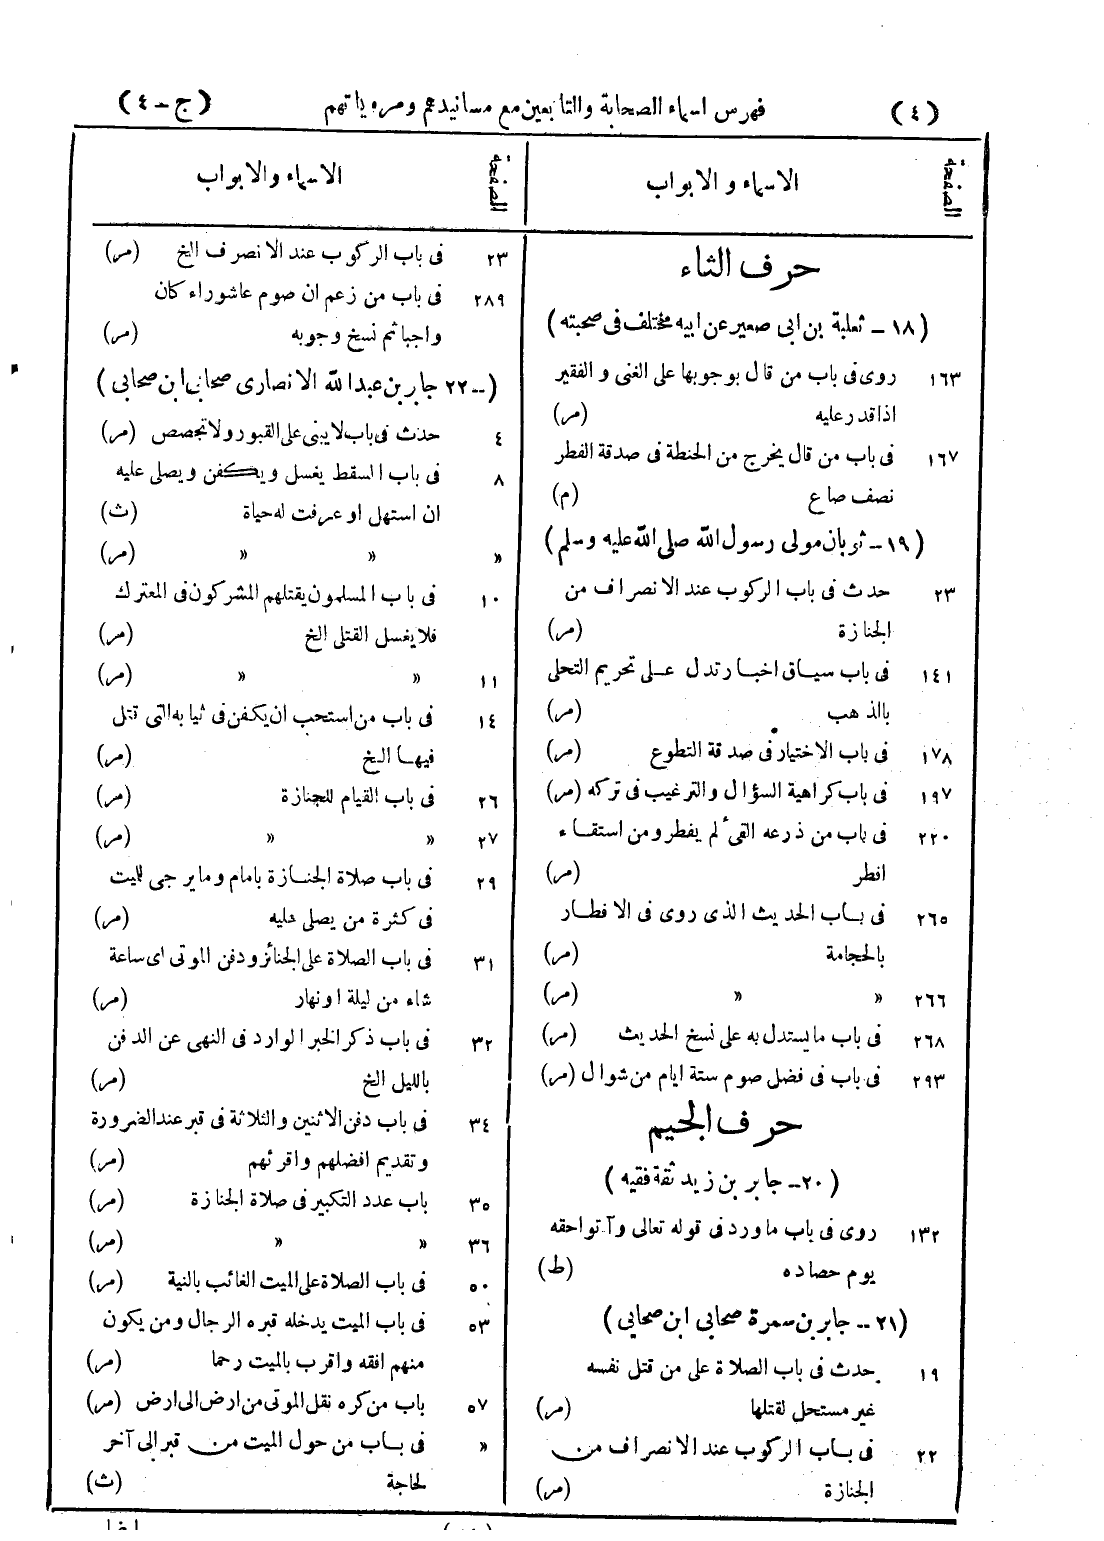 (٤) فهرس اسماء الصحابة والتابعين مع مسانيدهم ومروياتهم (ج - ٤)
الصفحة الاسماء و الابواب
حرف الثاء
(١٨ - ثعلبة بن ابى صعير عن ابيه مختلف فى صحبته)
١٦٣ روى فى باب من قال بوجوبها على الغنى و الفقير
اذا قدر عليه (مر)
١٦٧ فى باب من قال يخرج من الحنطة فى صدقة الفطر
نصف صاع (م)
(١٩ - ثوبان مولى رسول الله صلى الله عليه وسلم)
٢٣ حدث فى باب الركوب عند الانصراف من
الجنازة (مر)
١٤١ فى باب سياق اخبار تدل على تحريم التحلى
بالذهب (مر)
١٧٨ فى باب الاختيار فى صدقة التطوع (مر)
١٩٧ فى باب كراهية السؤال والترغيب فى تركه (مر)
٢٢٠ فى باب من ذرعه القىء لم يفطر ومن استقاء
افطر (مر)
٢٦٥ فى باب الحديث الذى روى فى الافطار
بالحجامة (مر)
٢٦٦ » » (مر)
٢٦٨ فى باب ما يستدل به على نسخ الحديث (مر)
٢٩٣ فى باب فى فضل صوم ستة ايام من شوال (مر)
حرف الجيم
(٢٠ - جابر بن زيد ثقة فقيه)
١٣٢ روى فى باب ما ورد فى قوله تعالى وآتوا حقه
يوم حصاده (ط)
(٢١ - جابر بن سمرة صحابى ابن صحابى)
١٩ حدث فى باب الصلاة على من قتل نفسه
غير مستحل لقتلها (مر)
٢٢ فى باب الركوب عند الانصراف من
الجنازة (مر)
الصفحة الاسماء والابواب
٢٣ فى باب الركوب عند الانصرف الخ (مر)
٢٨٩ فى باب من زعم ان صوم عاشوراء كان
واجبا ثم نسخ وجوبه (مر)
(٢٢ - جابر بن عبد الله الانصارى صحابى ابن صحابى)
٤ حدث فى باب لا يبنى على القبور ولا تجصص (مر)
٨ فى باب السقط يغسل ويكفن ويصلى عليه
ان استهل او عرفت له حياة (ث)
» » » (مر)
١٠ فى باب المسلمون يقتلهم المشركون فى المعترك
فلا يغسل القتلى الخ (مر)
١١ » » (مر)
١٤ فى باب من استحب ان يكفن فى ثيابه التى قتل
فيها الخ (مر)
٢٦ فى باب القيام للجنازة (مر)
٢٧ » » (مر)
٢٩ فى باب صلاة الجنازة بامام وما يرجى لليت
فى كثرة من يصلى عليه (مر)
٣١ فى باب الصلاة على الجنائز ودفن الموتى اى ساعة
شاء من ليلة او نهار (مر)
٣٢ فى باب ذكر الخبر الوارد فى النهى عن الدفن
بالليل الخ (مر)
٣٤ فى باب دفن الاثنين والثلاثة فى قبر عند الضرورة
وتقديم افضلهم واقرئهم (مر)
٣٥ باب عدد التكبير فى صلاة الجنازة (مر)
٣٦ » » (مر)
٥٠ فى باب الصلاة على الميت الغائب بالنية (مر)
٥٣ فى باب الميت يدخله قبره الرجال ومن يكون
منهم افقه واقرب بالميت رحما (مر)
٥٧ باب من كره نقل الموتى من ارض الى ارض (مر)
» فى باب من حول الميت من قبر الى آخر
لحاجة (ث)